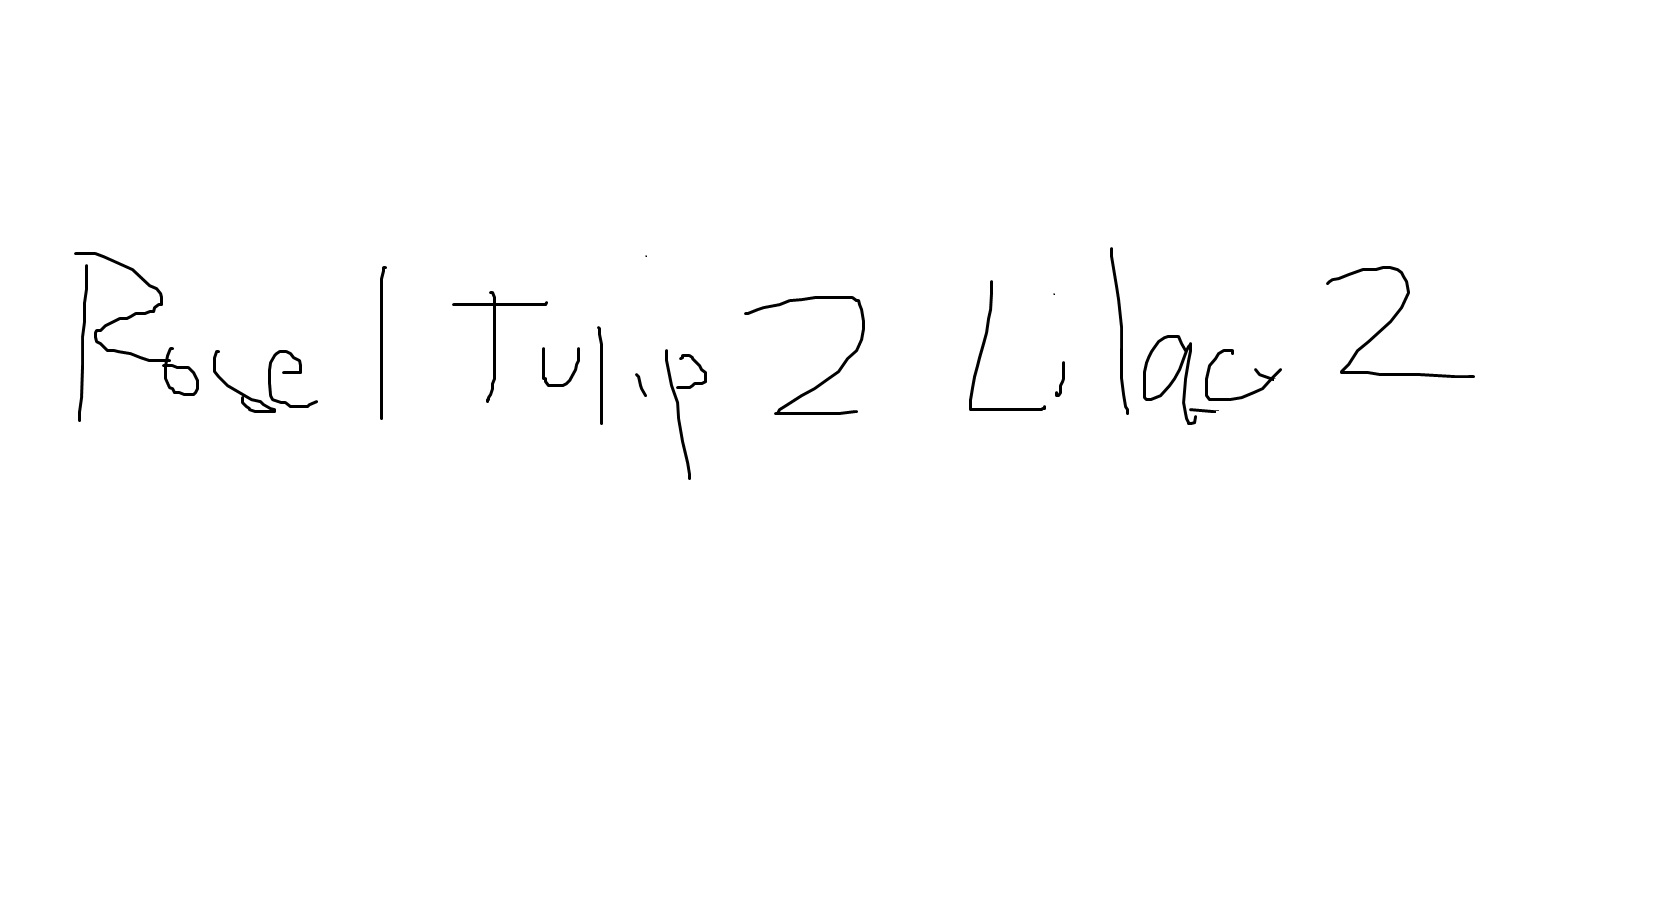 Rose 1 Tulip 2 Lilac 2